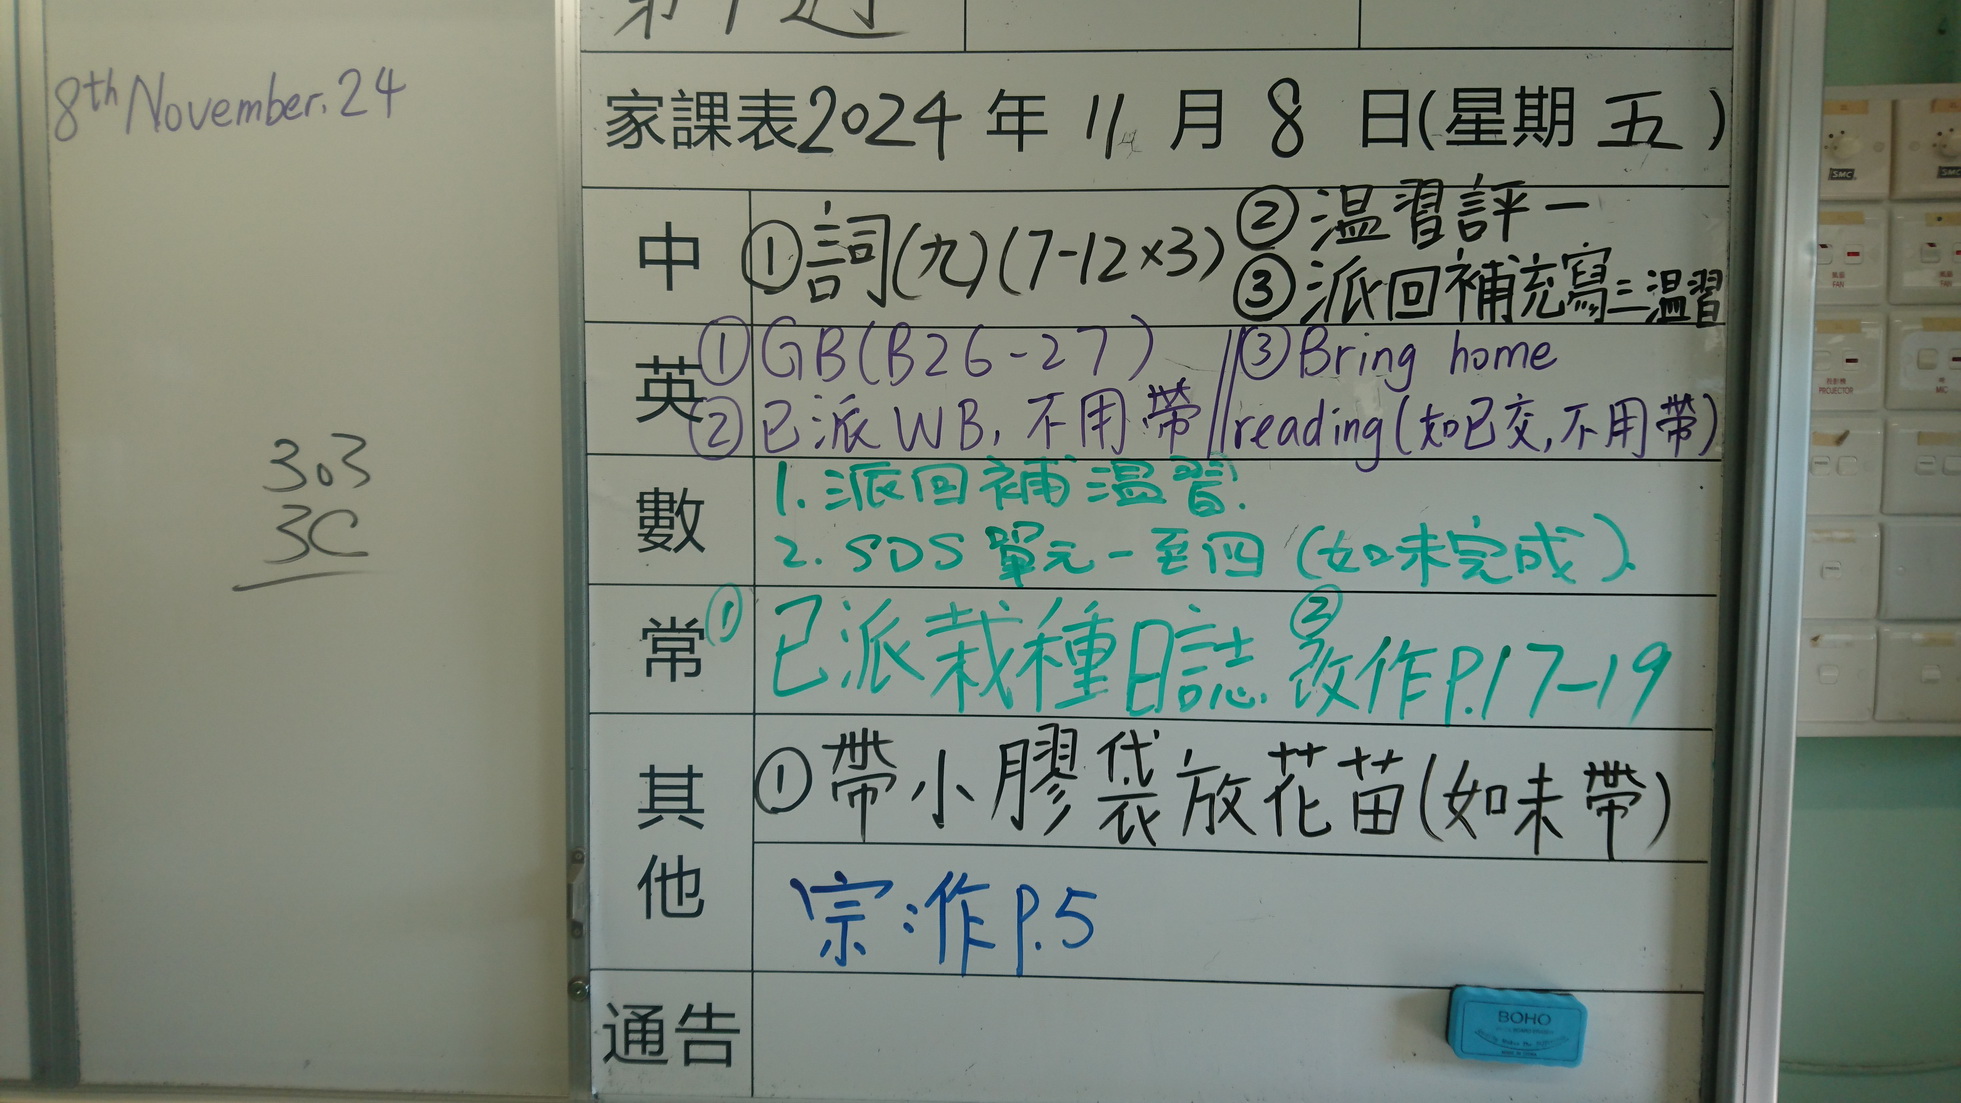 8th November. 24
303
3C
家課表2024年11月8日(星期五)
中
①詞(九)(7-12×3)
②温習評一
③派回補充寫三温習
英
①GB(B26-27)
②已派WB, 不用帶
③Bring home
reading(如已交,不用帶)
數
1. 派回補温習.
2. SDS 單元一至四 (如未完成).
常
①已派栽種日誌. ②改作P.17-19
其他
①帶小膠袋放花苗(如未帶)
宗:作P.5
通告
BOHO
SMC
SMC
FAN
PROJECTOR
MIC